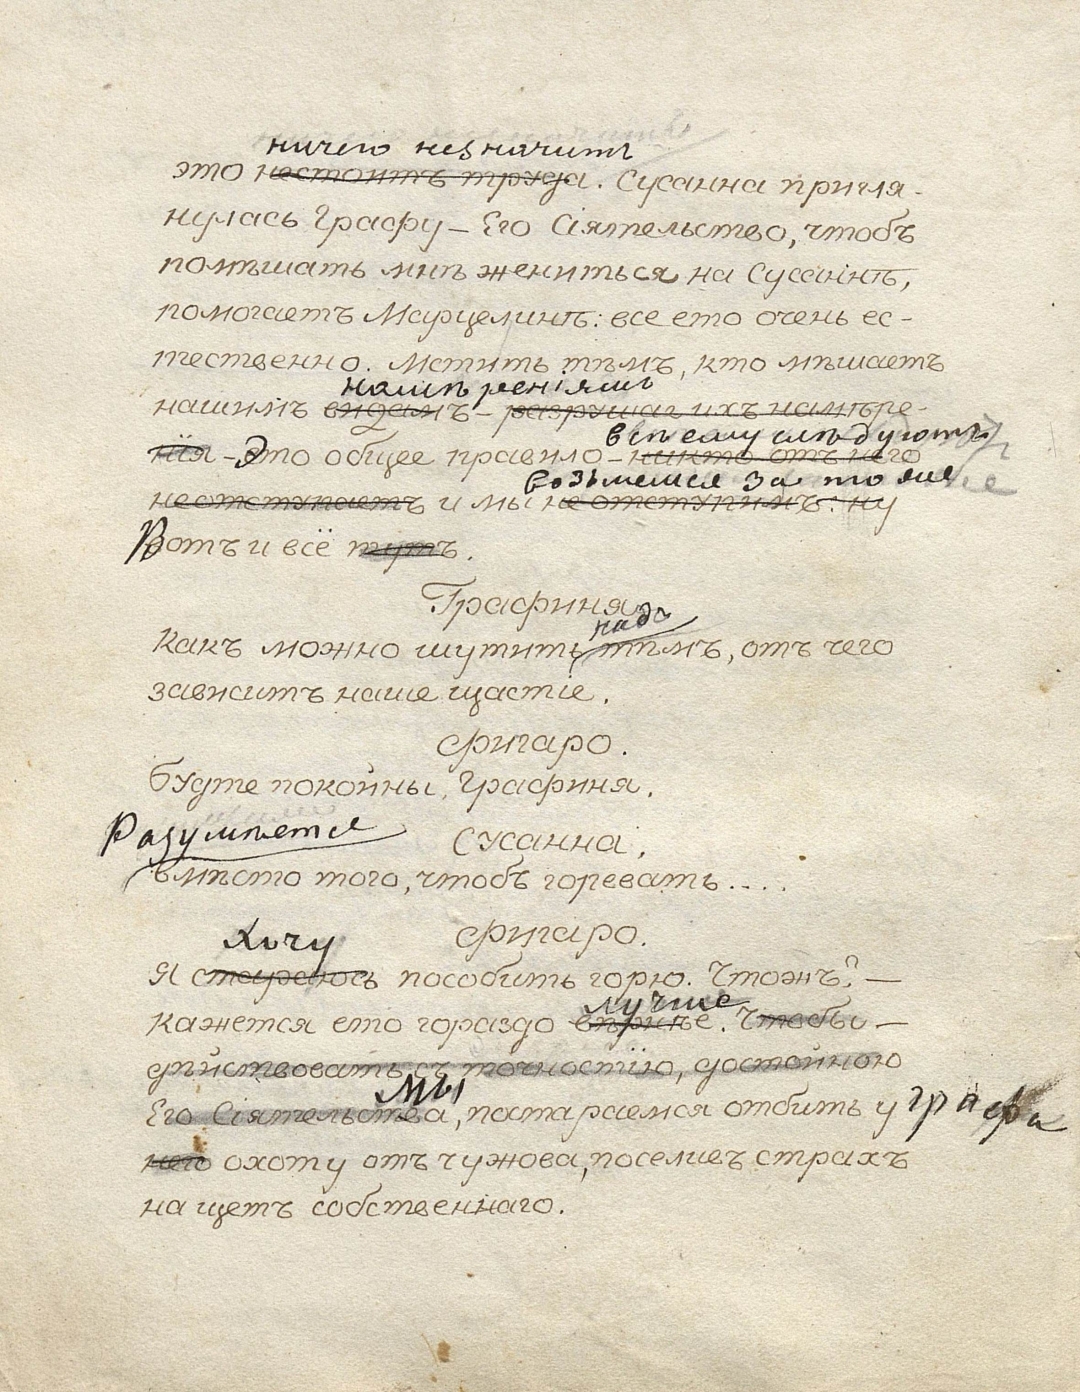 ничего незначитъ
это нестоитъ труда. Сусанна пригля-
нулась Графу — Его Сіятельство, чтобъ
помѣшать мнѣ жениться на Сусаннѣ,
помогаетъ Марцелинѣ: все ето очень ес-
тественно. Мстить тѣмъ, кто мѣшаетъ
намѣреніямъ
нашимъ видамъ — разрушая ихъ намѣре-
всѣ ему слѣдуютъ,
нія — Это общее правило — никто отъ него
возьмемся за то же
неотступаетъ и мы не отступимъ: ну
Вотъ и всё тутъ.
Графиня
надъ
Какъ можно шутить тѣмъ, отъ чего
зависитъ наше щастіе.
Фигаро.
Будте покойны, Графиня.
Разумѣется
Сусанна,
вмѣсто того, чтобъ горевать....
Фигаро.
Хочу
Я стараюсь пособить горю. Чтожъ? —
лучше
Кажется ето гораздо вѣрнѣе. Чтобы —
дѣйствовать съ точностію, достойною
Мы
Его Сіятельства, постараемся отбить у графа
него охоту отъ чужова, поселивъ страхъ
на щетъ собственнаго.